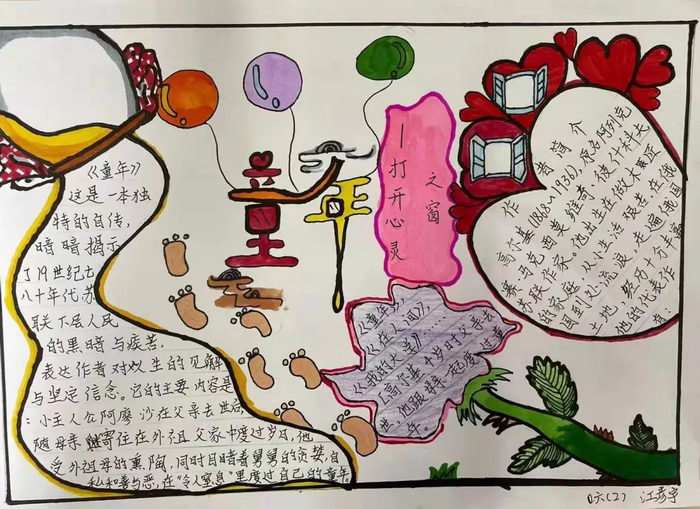 童年
—打开心灵
之窗
《童年》
这是一本独
特的自传，
暗暗揭示
了19世纪七
八十年代苏
联下层人民
的黑暗与疾苦.
表达作者对人生的见解
与坚定信念。它的主要内容是
：小主人公阿廖沙在父亲去世后，
随母亲寄住在外祖父家中度过岁月，他
受外祖母的熏陶，同时目睹着舅舅的贪婪，自
私和善与恶，在“令人窒息”里度过自己的童年。
作者简介
高尔基（1868~1936），原名阿列克
塞·马克西莫维奇·彼什科夫
苏联作家。他出生在做木工
的家庭，从小生活艰难，在俄
国到处流浪，走遍俄国
土地，经历十分丰富
他的代表作
有
《童年》，
《在人间》，
《我的大学》
高尔基4岁时父亲去
世，他跟母亲一起度过童
年。
六（2） 江彦宇